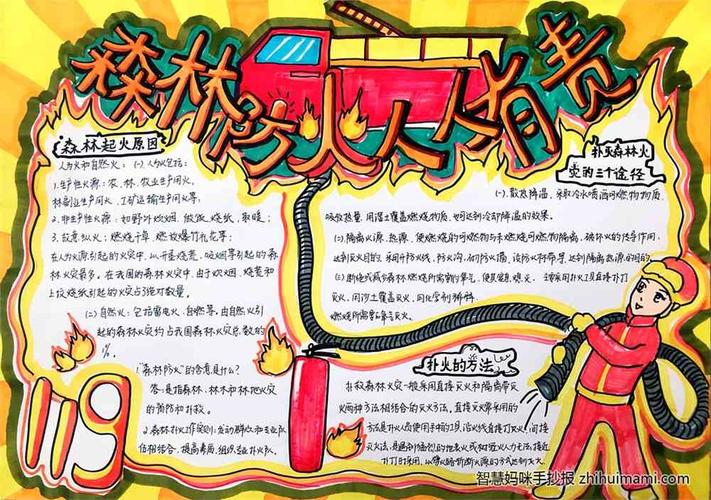 森林防火人人有责
森林起火原因
人为火和自然火：(一)人为火包括：
1.生产性火源：农、林、牧业生产用火，
林副业生产用火，工矿运输生产用火等，
2.非生产性火源：如野外炊烟，做饭，烧纸，取暖；
3.故意纵火：燃烧干草，燃放爆竹礼花等；
在人为火源引起的火灾中，以开垦烧荒、吸烟等引起的森
林火灾最多。在我国的森林火灾中，由于炊烟、烧荒和
上坟烧纸引起的火灾占了绝对数量。
(二)自然火：包括雷电火，自燃等。由自然火引
起的森林火灾约占我国森林火灾总数的
1%。
1."森林防火"的含意是什么？
答：是指森林、林木和林地火灾
的预防和扑救。
2.森林扑火工作实行发动群众和专业队
伍相结合，提高素质，组织专业扑火队。
119
扑灭森林火
灾的三个途径
(一)、散热降温，采取冷水喷洒可燃物物质，
吸收热量，用湿土覆盖燃烧物质，也可达到冷却降温的效果。
(二)隔离火源、热源，使燃烧的可燃物与未燃烧可燃物隔离，破坏火的传导作用，
达到灭火目的。采用开防火线，防火沟，砌防火墙，设防火林带等
(三)断绝或减少森林燃烧所需要的氧气，使其窒息熄灭。主要采用扑火工具直接扑打
灭火，用沙土覆盖灭火，用化学剂稀释
燃烧所需要氧气灭火。
扑火的方法
扑救森林火灾一般采用直接灭火和隔离带灭
火两种方法相结合的灭火方法。直接灭火常采用的
方法是扑火人员使用手中的工具沿火线直接打灭火，间接
智慧妈咪手抄报 zhihuimami.com